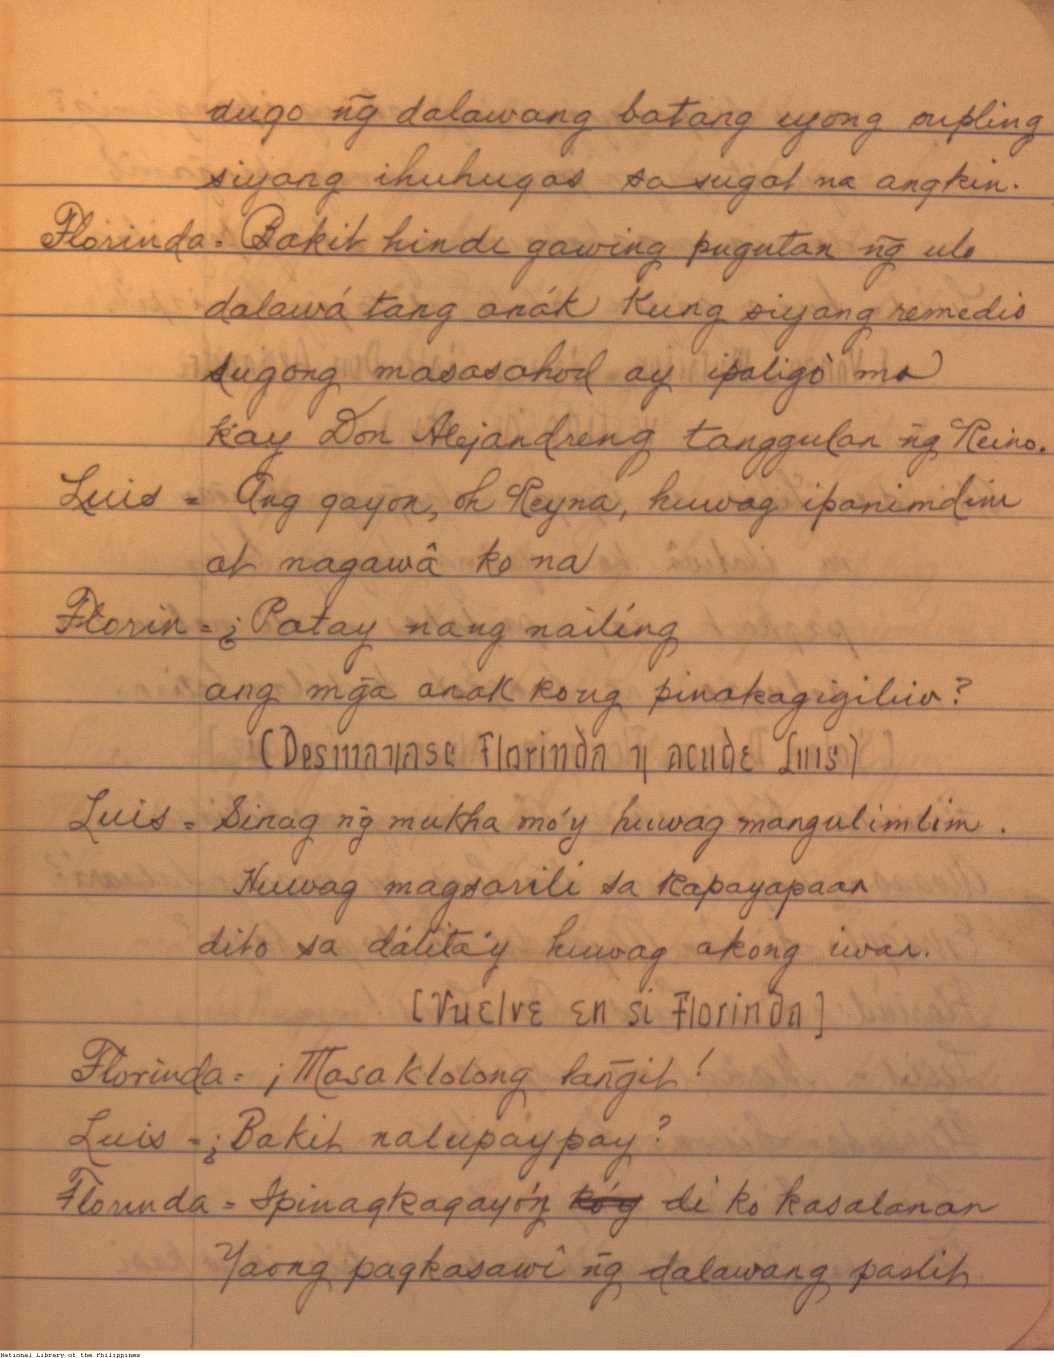 dugo ñg dalawang batang iyong supling
siyang ihuhugas sa sugat na angkin.
Florinda = Bakit hindi gawing pugutan ñg ulo
dalawá tang anák kung siyang remedio
dugong masasahod ay ipaligò mo
kay Don Alejandreng tanggulan ñg Reino.
Luis = Ang gayon, oh Reyna, huwag ipanimdim
at nagawâ ko na
Florin = ¿Patay nang nailíng
ang mg̃a anak kong pinakagigiliw?
(Desmayase Florinda y acude Luis)
Luis = Sinag ñg mukha mo'y huwag mangulimlim.
Huwag magsarili sa kapayapaan
dito sa dálita'y huwag akong iwan.
[Vuelve en si Florinda]
Florinda = ¡Masaklolong lañgit!
Luis = ¿Bakit nalupaypay?
Florinda = Ipinagkagayón ko'y di ko kasalanan
Yaong pagkasawî ñg dalawang paslit
National Library of the Philippines